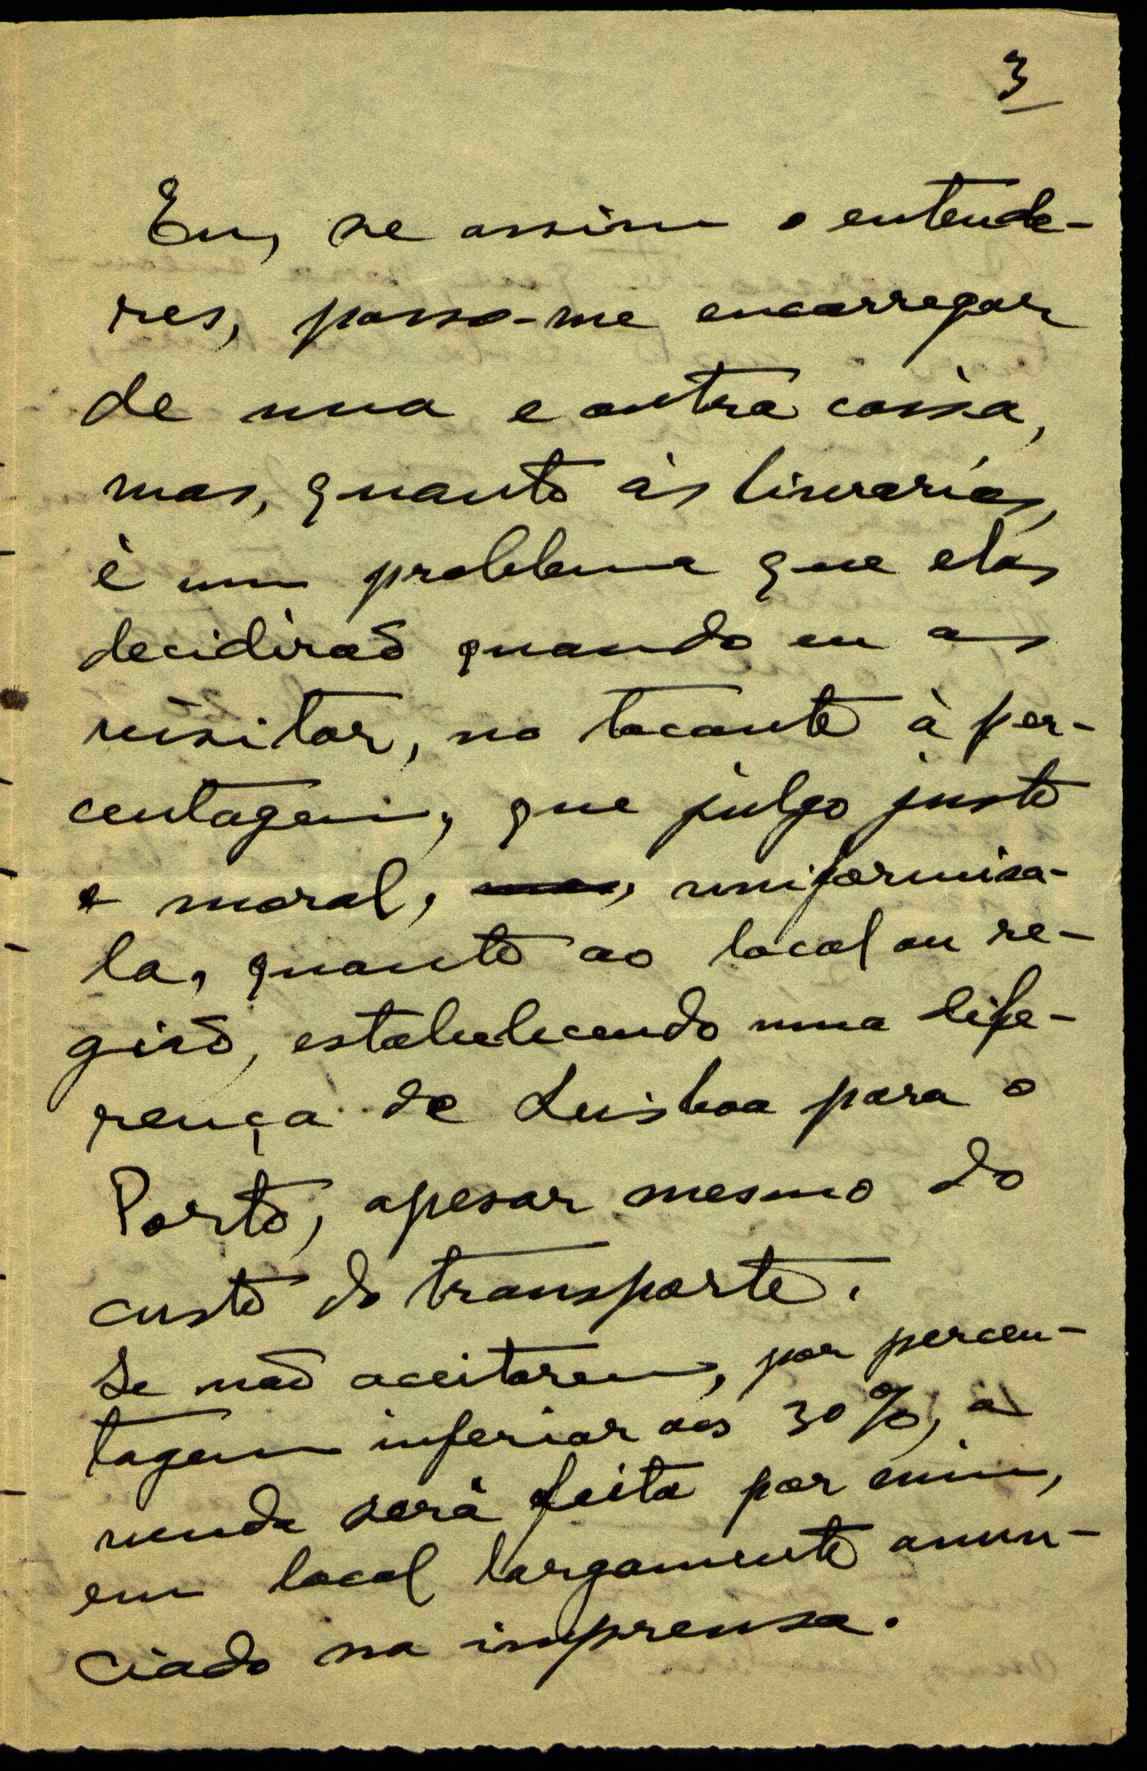 3
Eu, se assim o entende-
res, posso-me encarregar
de uma e outra coisa,
mas, quanto às livrarias,
é um problema que elas
decidirão quando eu as
visitar, no tocante à per-
centagem, que julgo justo
e moral, mas, uniformisa-
la, quanto ao local ou re-
gião, estabelecendo uma dife-
rença de Lisboa para o
Porto, apesar mesmo do
custo do transporte.
Se não aceitarem, por percen-
tagem inferior aos 30%, a
venda será feita por mim,
em local largamente anun-
ciado na imprensa.